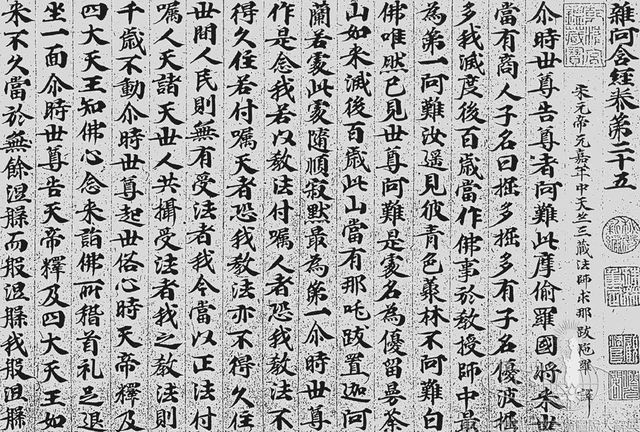 雜阿含經卷第二十五
宋元帝元嘉年中天竺三藏法師求那跋陁羅譯
尒時世尊告尊者阿難此摩偷羅國將来世
當有商人子名曰掘多掘多有子名優波掘
多我滅度後百歲當作佛事於教授師中最
為第一阿難汝遥見彼青色藂林不阿難白
佛唯然已見世尊阿難是處名為優留曼荼
山如来滅後百歲此山當有那吒跋置迦阿
蘭若處此處隨順寂默最為第一尒時世尊
作是念我若以教法付囑人者恐我教法不
得久住若付囑天者恐我教法亦不得久住
世間人民則無有受法者我今當以正法付
囑人天諸天世人共攝受法者我之教法則
千歲不動尒時世尊起世俗心時天帝釋及
四大天王知佛心念来詣佛所稽首礼足退
坐一面尒時世尊告天帝釋及四大天王如
来不久當於無餘涅槃而般涅槃我般涅槃